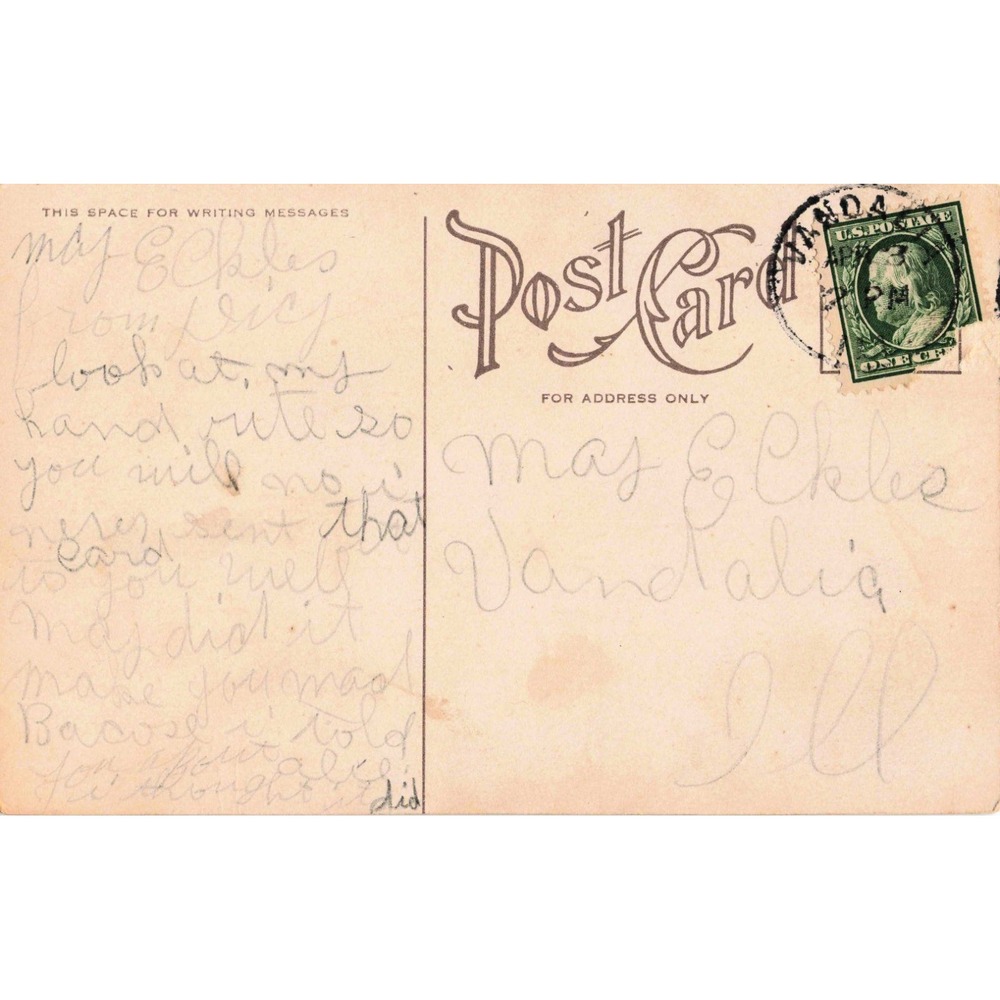 THIS SPACE FOR WRITING MESSAGES
may Eckles
from
look at, my
hand rite so
you will no i
never sent that
card
to you well
may did it
make you mad
Bacose i told
you about
i thought it did
Post Card
FOR ADDRESS ONLY
may Eckles
Vandalia,
Ill
VANDA
APR 3
PM
U.S. POSTAGE
ONE CE